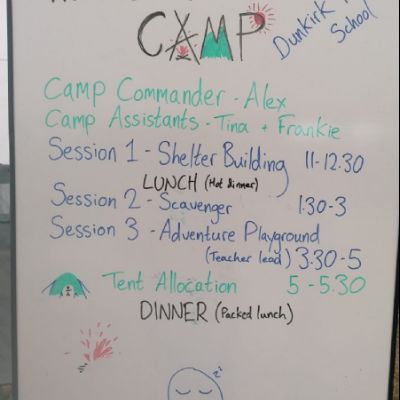 CAMP
Dunkirk
School
Camp Commander - Alex
Camp Assistants - Tina + Frankie
Session 1 - Shelter Building 11-12.30
LUNCH (Hot dinner)
Session 2 - Scavenger 1.30-3
Session 3 - Adventure Playground
(Teacher lead) 3.30-5
Tent Allocation 5-5.30
DINNER (Packed lunch)
zz